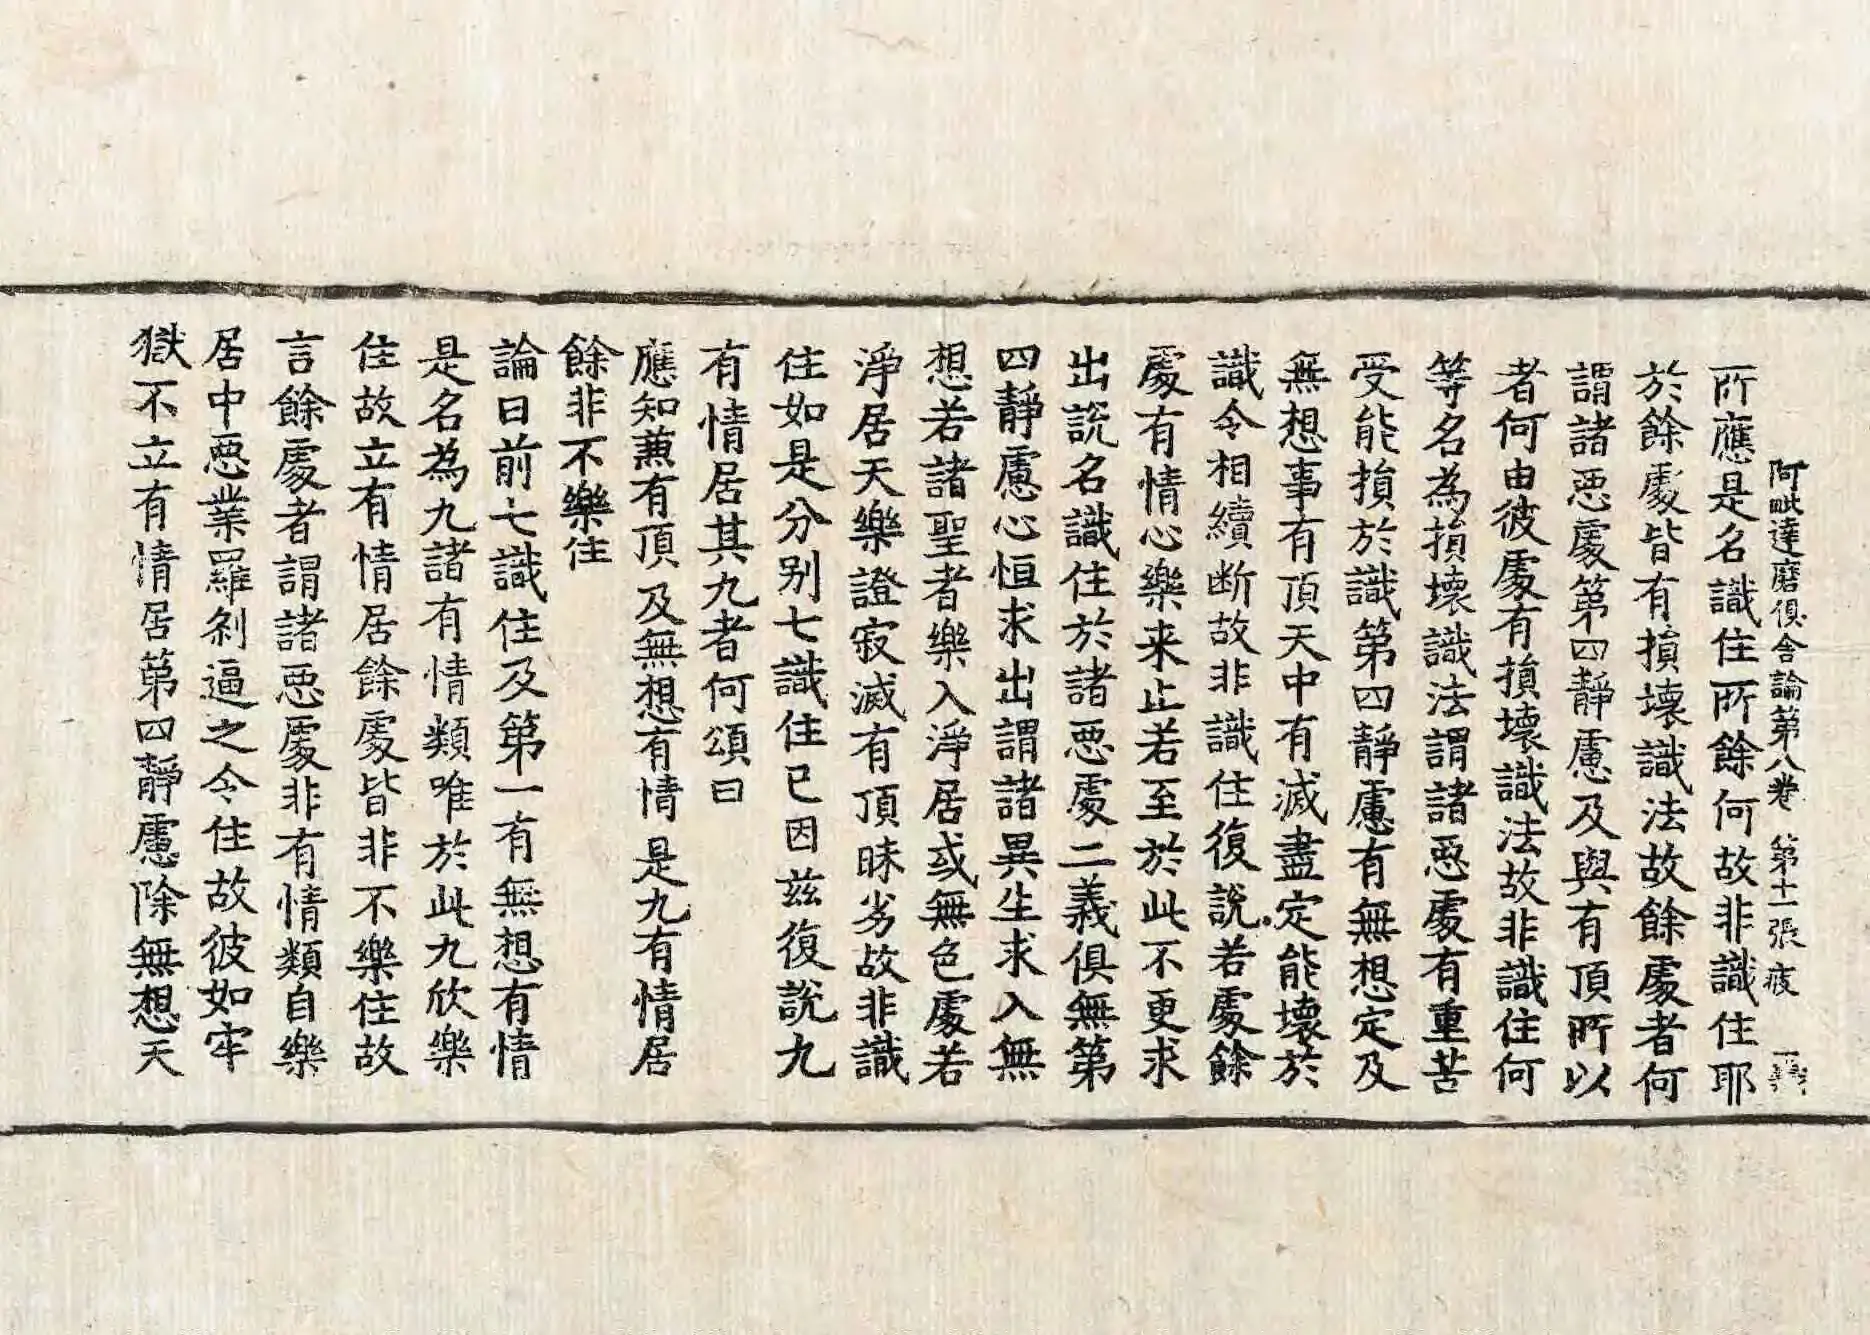 阿毗達磨俱舍論第八卷 第十一張 疲
所應是名識住所餘何故非識住耶
於餘處皆有損壞識法故餘處者何
謂諸惡處第四靜慮及與有頂所以
者何由彼處有損壞識法故非識住何
等名為損壞識法謂諸惡處有重苦
受能損於識第四靜慮有無想定及
無想事有頂天中有滅盡定能壞於
識令相續断故非識住復說若處餘
處有情心樂来止若至於此不更求
出說名識住於諸惡處二義俱無第
四靜慮心恒求出謂諸異生求入無
想若諸聖者樂入淨居或無色處若
淨居天樂證寂滅有頂昧劣故非識
住如是分别七識住已因茲復說九
有情居其九者何頌曰
應知兼有頂 及無想有情 是九有情居
餘非不樂住
論曰前七識住及第一有無想有情
是名為九諸有情類唯於此九欣樂
住故立有情居餘處皆非不樂住故
言餘處者謂諸惡處非有情類自樂
居中惡業羅剎逼之令住故彼如牢
獄不立有情居第四靜慮除無想天